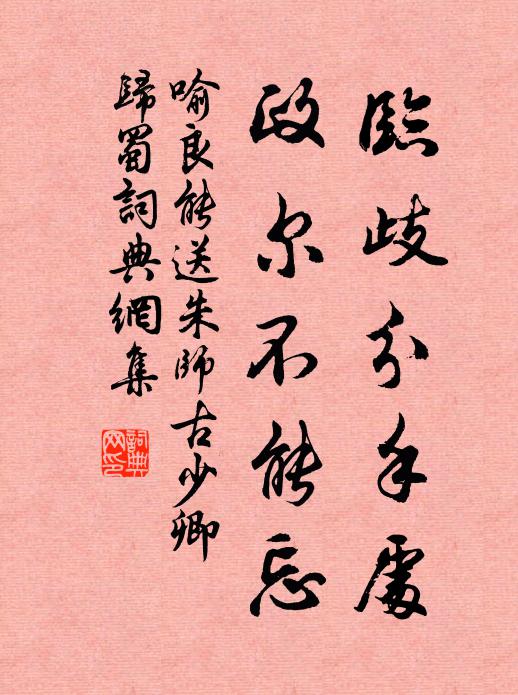 臨歧分手處
政尔不能忘
喻良能送朱師古少卿
歸蜀詞典網集
詞典
网印